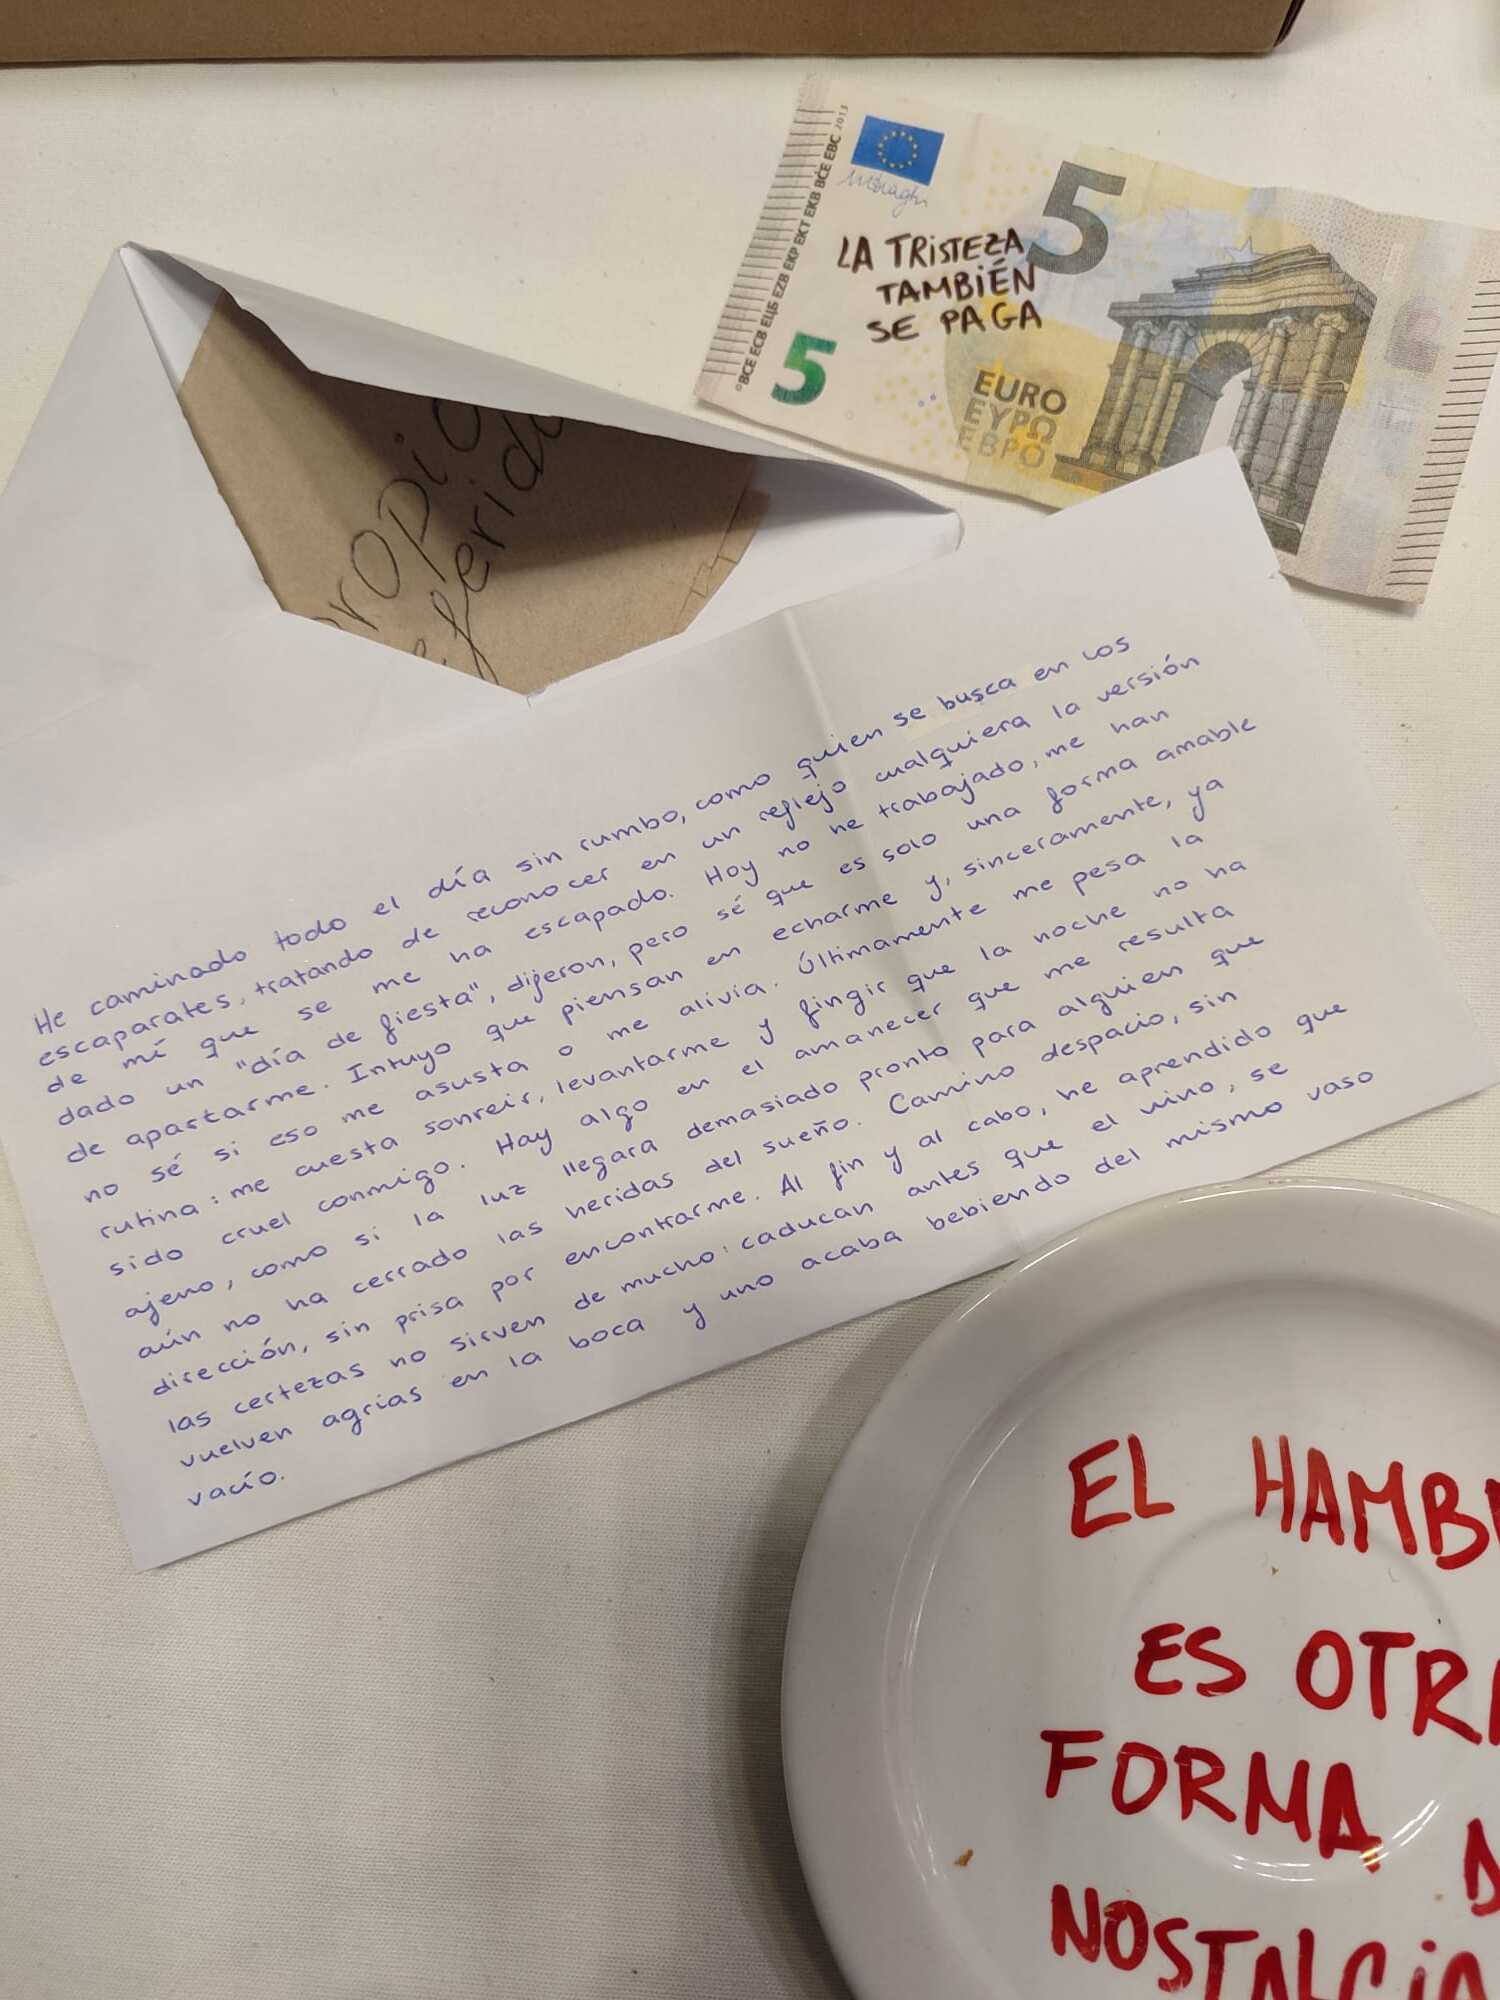 BCE ECB ЕЦБ EZB EKP EKT EKB BĊE EBC 2013
5
LA TRISTEZA
TAMBIÉN
SE PAGA
5
EURO
ΕΥΡΩ
ЕВРО
He caminado todo el día sin rumbo, como quien se busca en los
escaparates, tratando de reconocer en un reflejo cualquiera la versión
de mí que se me ha escapado. Hoy no he trabajado, me han
dado un "día de fiesta", dijeron, pero sé que es solo una forma amable
de apartarme. Intuyo que piensan en echarme y, sinceramente, ya
no sé si eso me asusta o me alivia. Últimamente me pesa la
rutina: me cuesta sonreir, levantarme y fingir que la noche no ha
sido cruel conmigo. Hay algo en el amanecer que me resulta
ajeno, como si la luz llegara demasiado pronto para alguien que
aún no ha cerrado las heridas del sueño. Camino despacio, sin
dirección, sin prisa por encontrarme. Al fin y al cabo, he aprendido que
las certezas no sirven de mucho: caducan antes que el vino, se
vuelven agrias en la boca y uno acaba bebiendo del mismo vaso
vacío.
EL
ES
FORMA